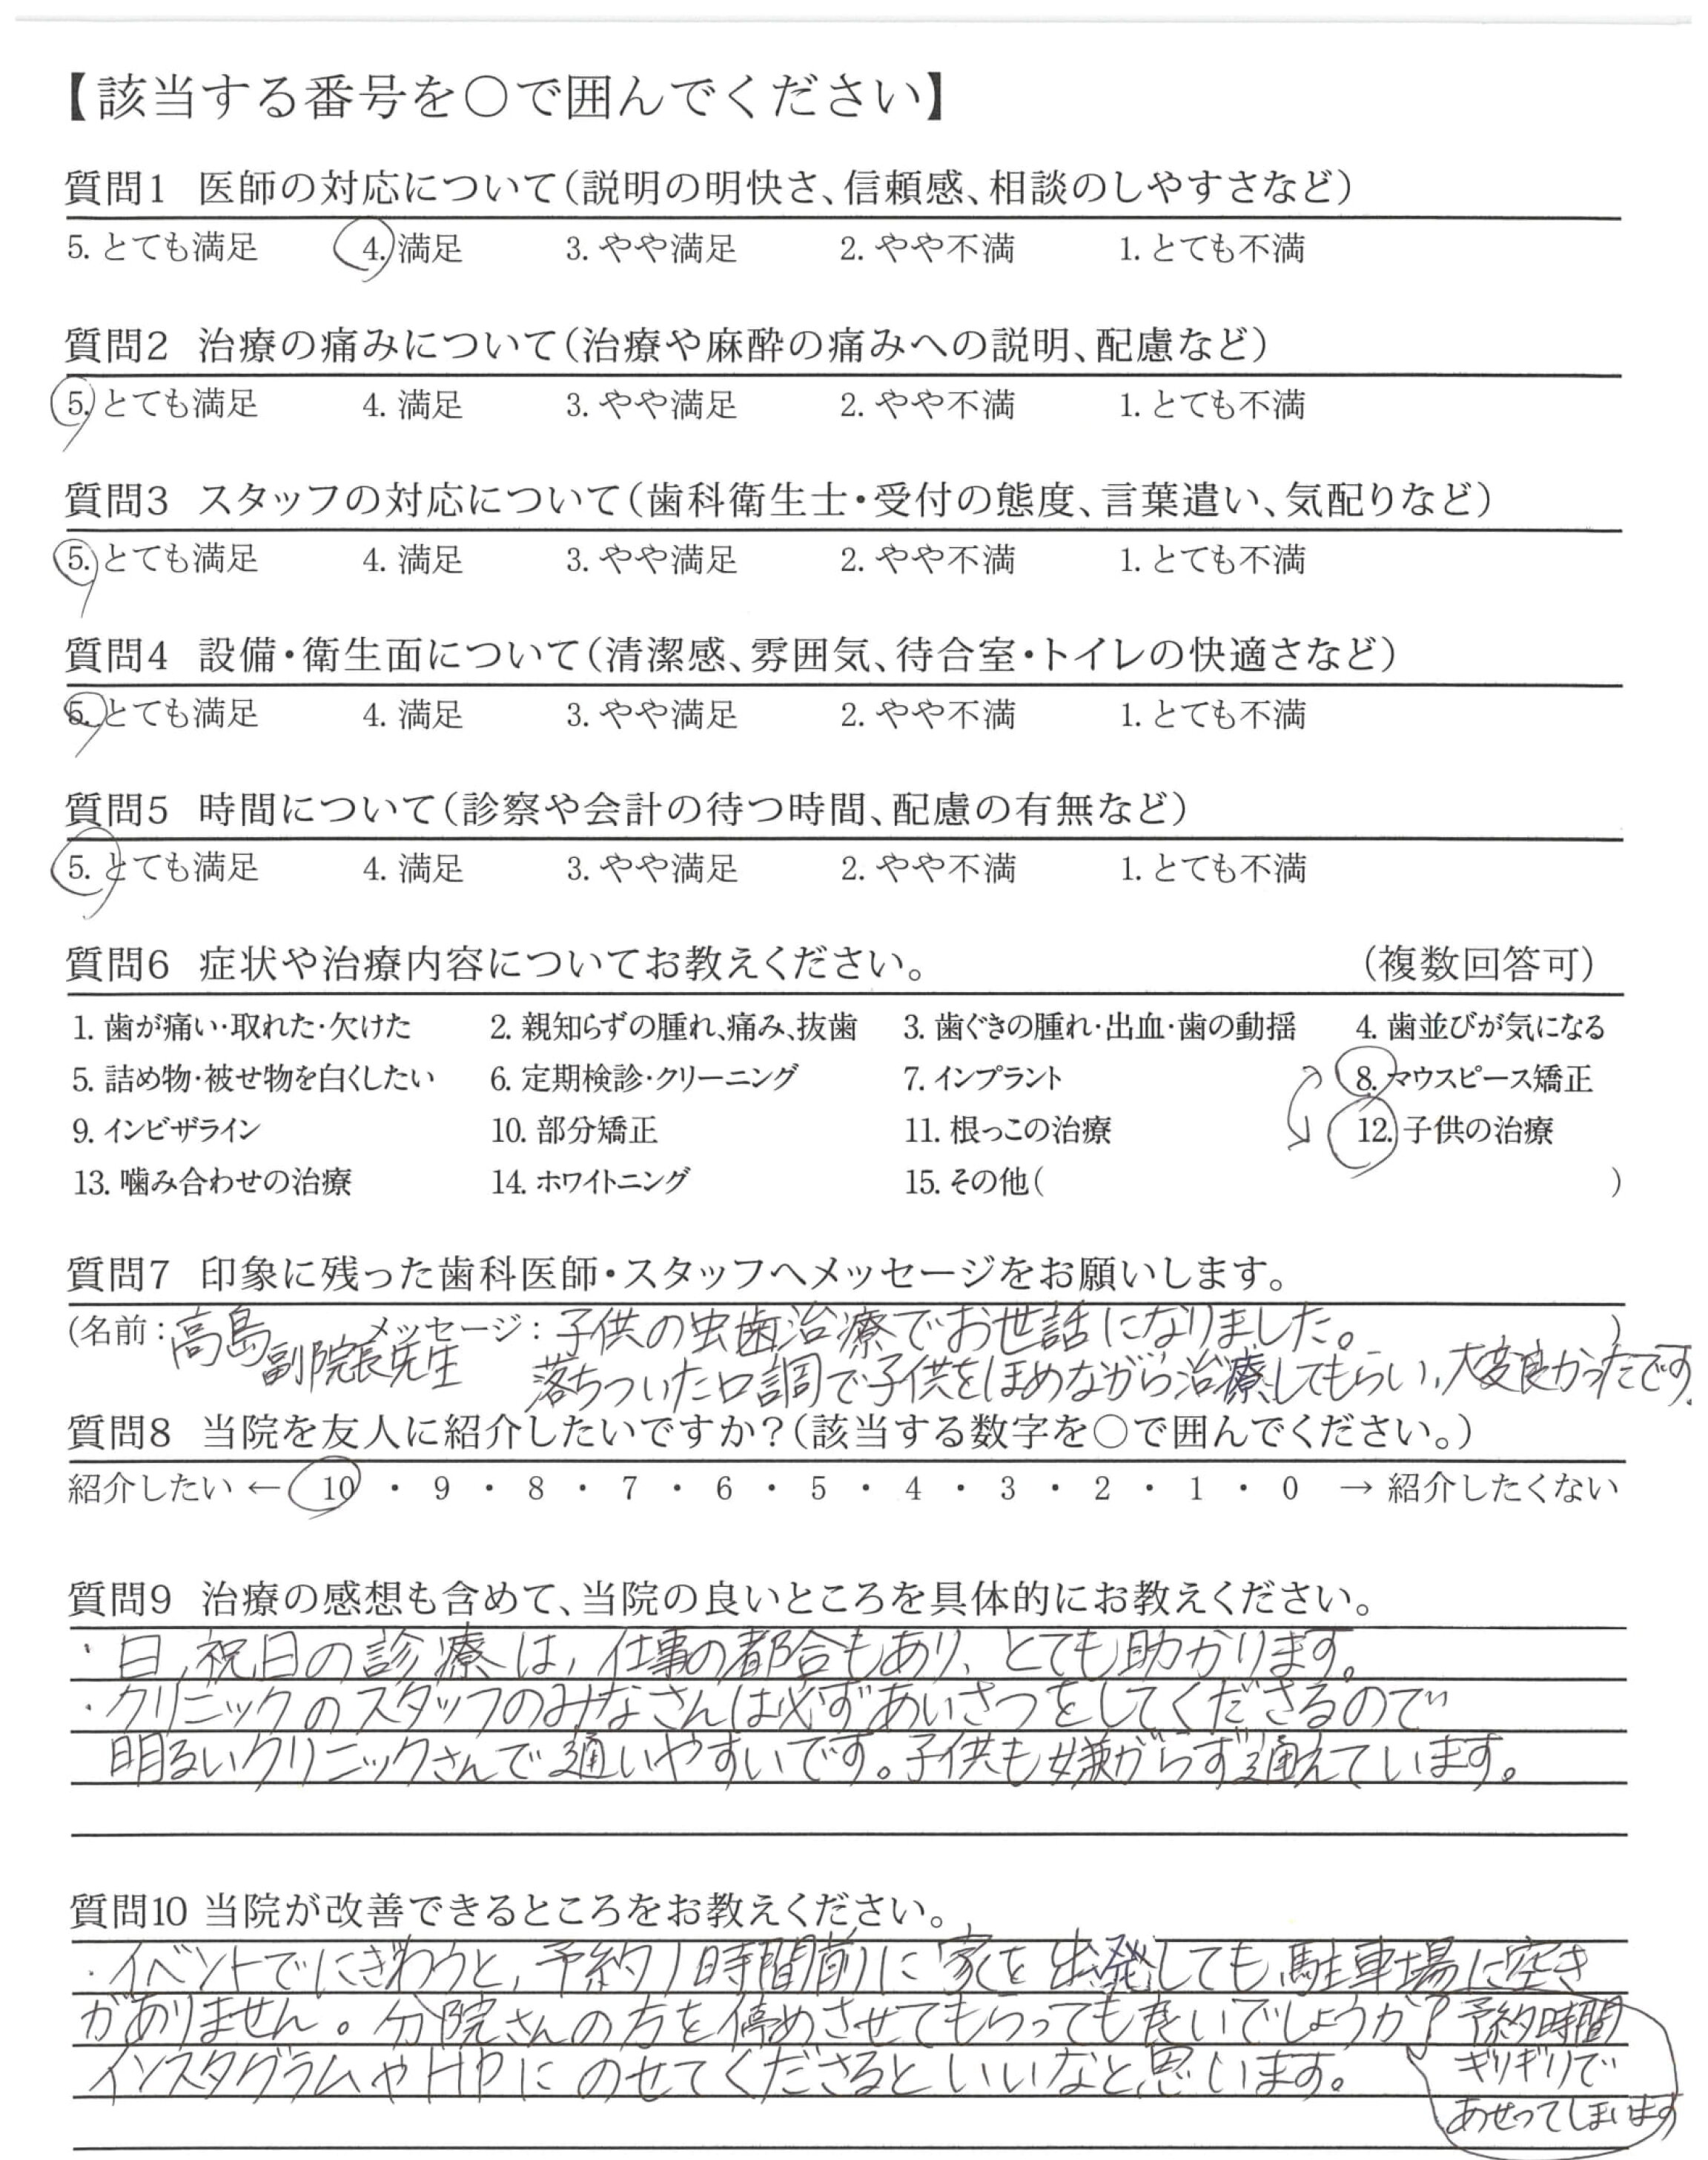 【該当する番号を○で囲んでください】
質問1 医師の対応について(説明の明快さ、信頼感、相談のしやすさなど)
5. とても満足 4. 満足 3. やや満足 2. やや不満 1. とても不満
質問2 治療の痛みについて(治療や麻酔の痛みへの説明、配慮など)
5. とても満足 4. 満足 3. やや満足 2. やや不満 1. とても不満
質問3 スタッフの対応について(歯科衛生士・受付の態度、言葉遣い、気配りなど)
5. とても満足 4. 満足 3. やや満足 2. やや不満 1. とても不満
質問4 設備・衛生面について(清潔感、雰囲気、待合室・トイレの快適さなど)
5. とても満足 4. 満足 3. やや満足 2. やや不満 1. とても不満
質問5 時間について(診察や会計の待つ時間、配慮の有無など)
5. とても満足 4. 満足 3. やや満足 2. やや不満 1. とても不満
質問6 症状や治療内容についてお教えください。 (複数回答可)
1. 歯が痛い・取れた・欠けた 2. 親知らずの腫れ、痛み、抜歯 3. 歯ぐきの腫れ・出血・歯の動揺 4. 歯並びが気になる
5. 詰め物・被せ物を白くしたい 6. 定期検診・クリーニング 7. インプラント 8. マウスピース矯正
9. インビザライン 10. 部分矯正 11. 根っこの治療 12. 子供の治療
13. 噛み合わせの治療 14. ホワイトニング 15. その他( )
質問7 印象に残った歯科医師・スタッフへメッセージをお願いします。
(名前: 高島 メッセージ: 子供の虫歯治療でお世話になりました。 )
副院長先生 落ちついた口調で子供をほめながら治療してもらい、大変良かったです。
質問8 当院を友人に紹介したいですか?(該当する数字を○で囲んでください。)
紹介したい ← 10 ・ 9 ・ 8 ・ 7 ・ 6 ・ 5 ・ 4 ・ 3 ・ 2 ・ 1 ・ 0 → 紹介したくない
質問9 治療の感想も含めて、当院の良いところを具体的にお教えください。
・日、祝日の診療は、仕事の都合もあり、とても助かります。
・クリニックのスタッフのみなさんは必ずあいさつをしてくださるので
明るいクリニックさんで通いやすいです。子供も嫌がらず通えています。
質問10 当院が改善できるところをお教えください。
・イベントでにぎわうと、予約1時間前に家を出発しても駐車場に空き
がありません。分院さんの方を停めさせてもらっても良いでしょうか? 予約時間
インスタグラムやHPにのせてくださるといいなと思います。 ギリギリで
あせってしまいます